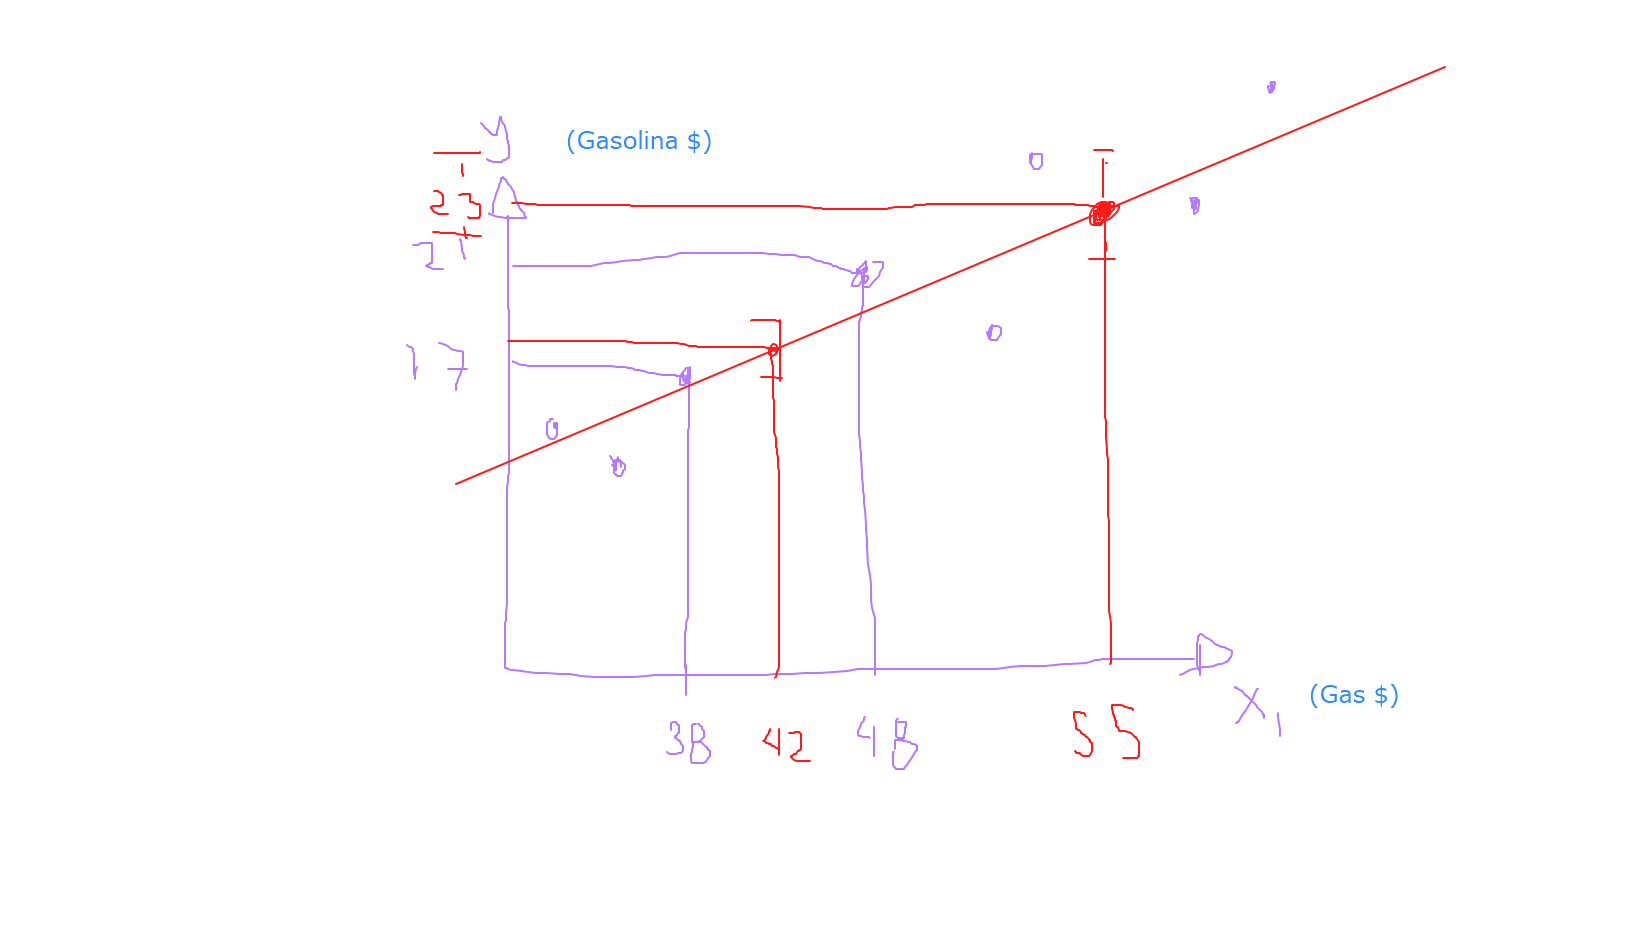 y (Gasolina $)
23
21
17
38 42 48 55
x1 (Gas $)